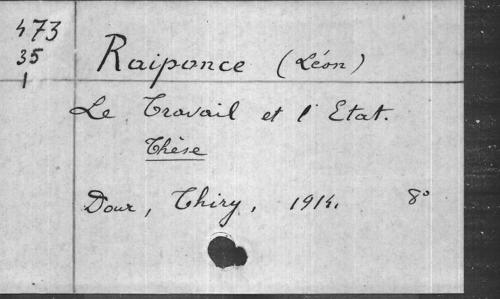 473
35
1
Raiponce (Léon)
Le Travail et l'Etat.
Thèse
Dour, Thiry, 1914. 8°